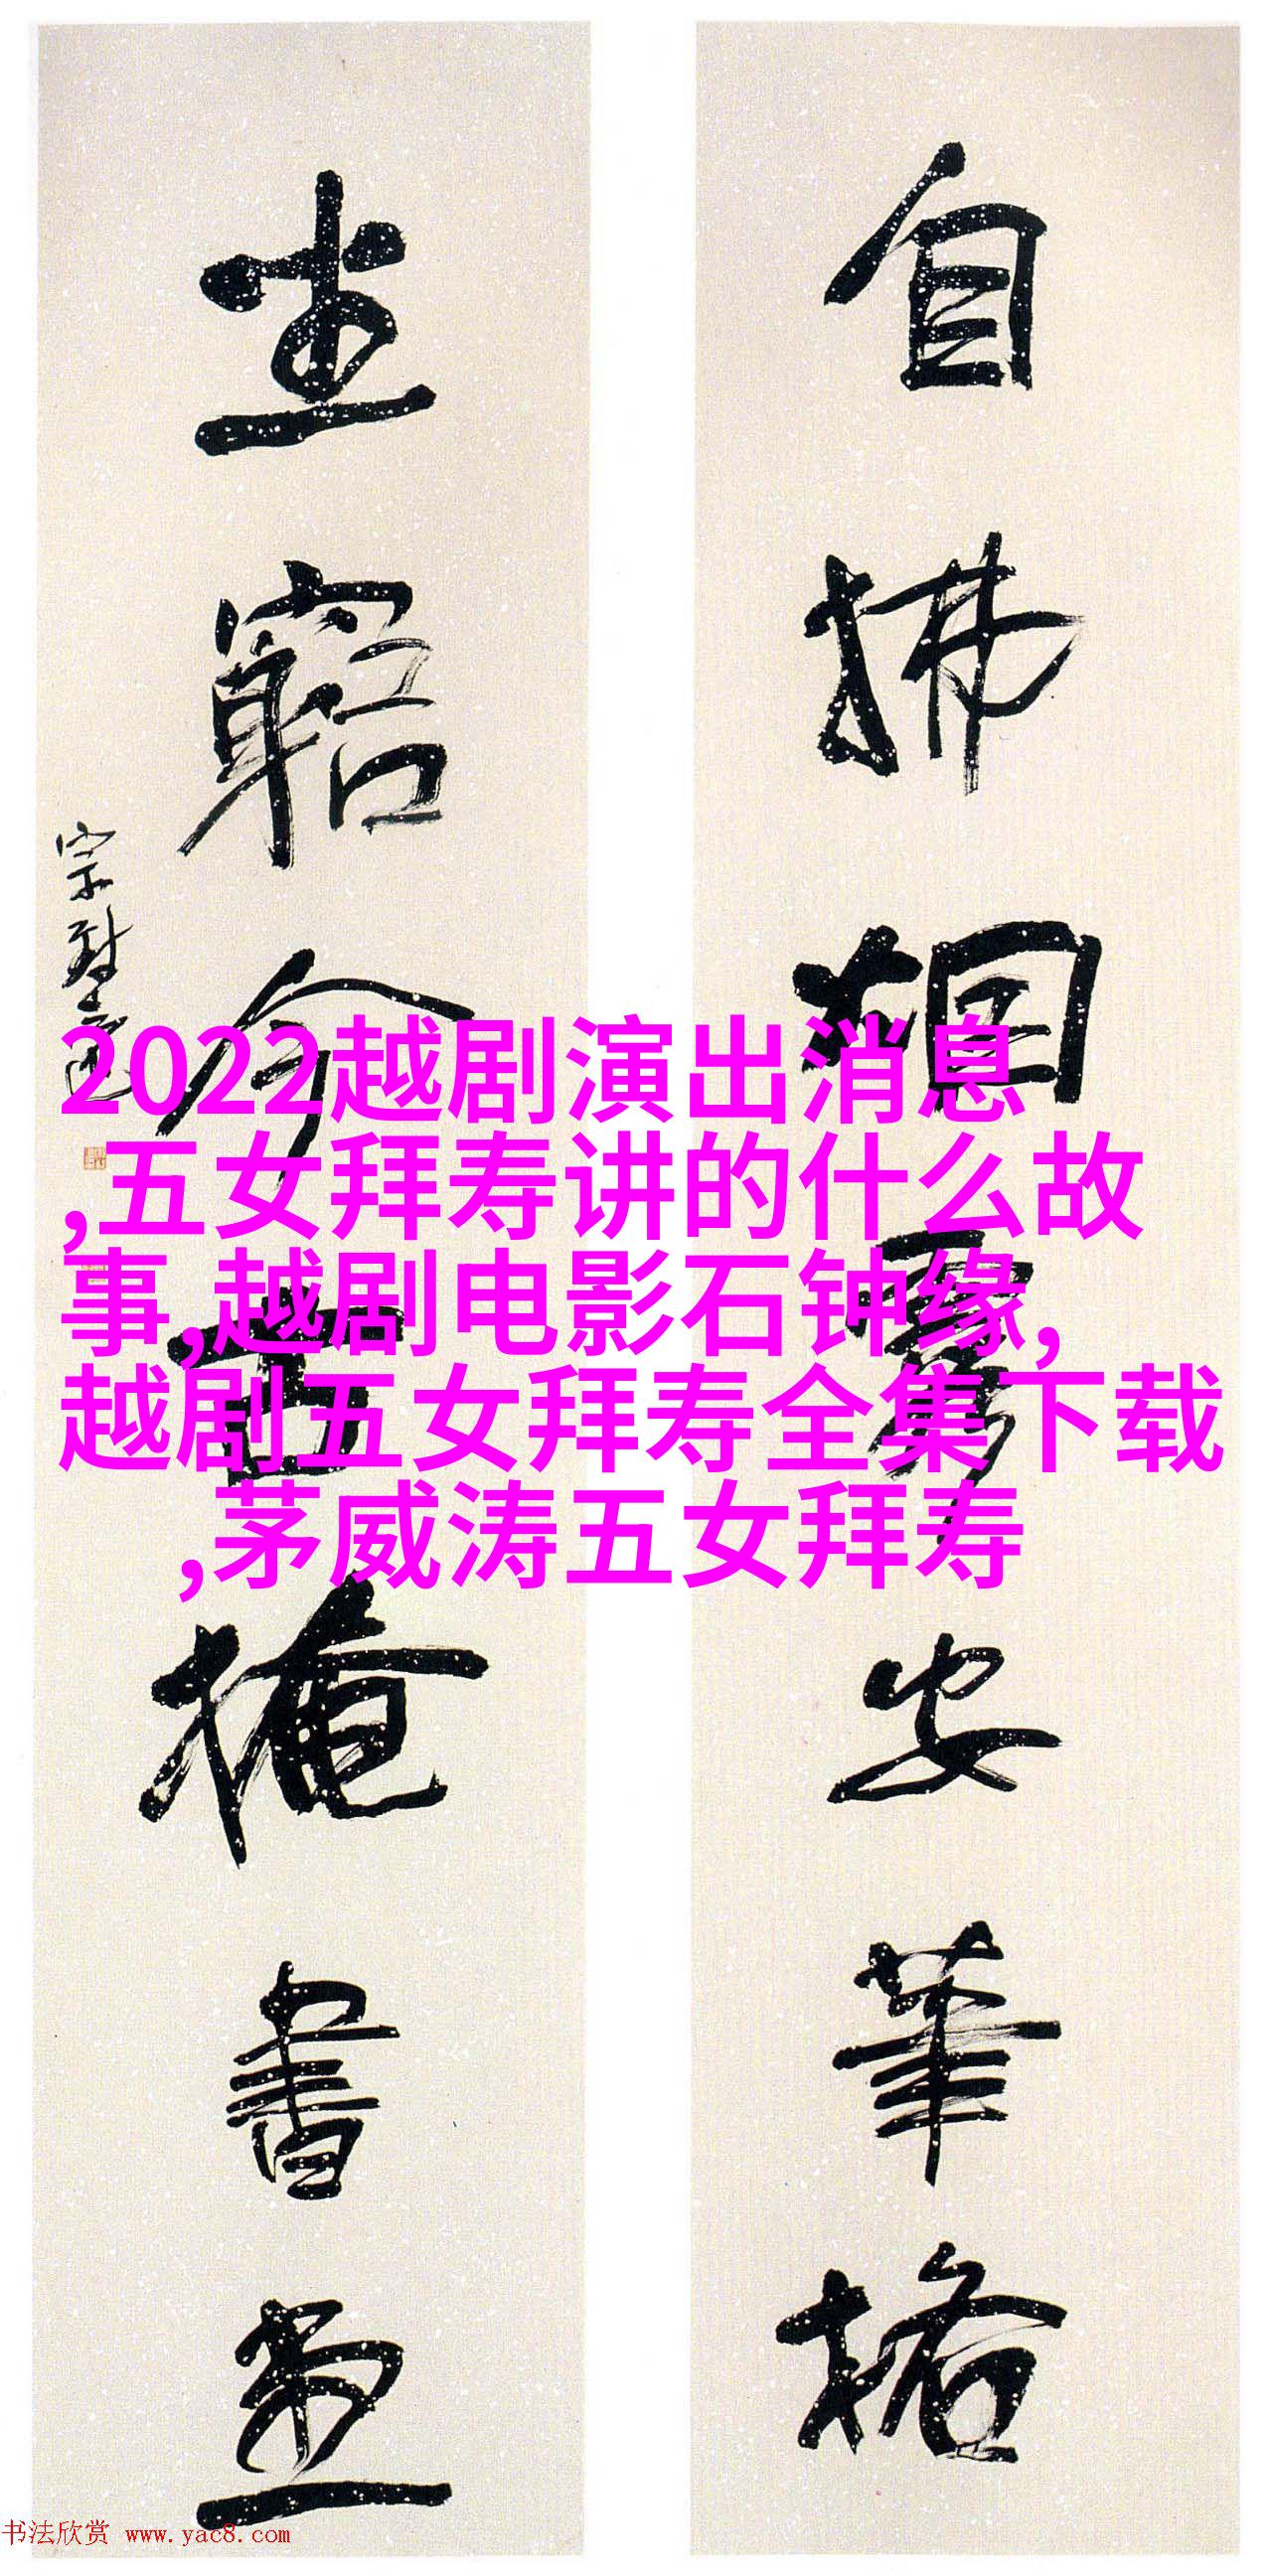 自拂烟霞安筆格
坐窮今古掩書堂
2022越剧演出消息
,五女拜寿讲的什么故
事,越剧电影石钟缘,
越剧五女拜寿全集下载
,茅威涛五女拜寿
书法欣赏 www.yac8.com